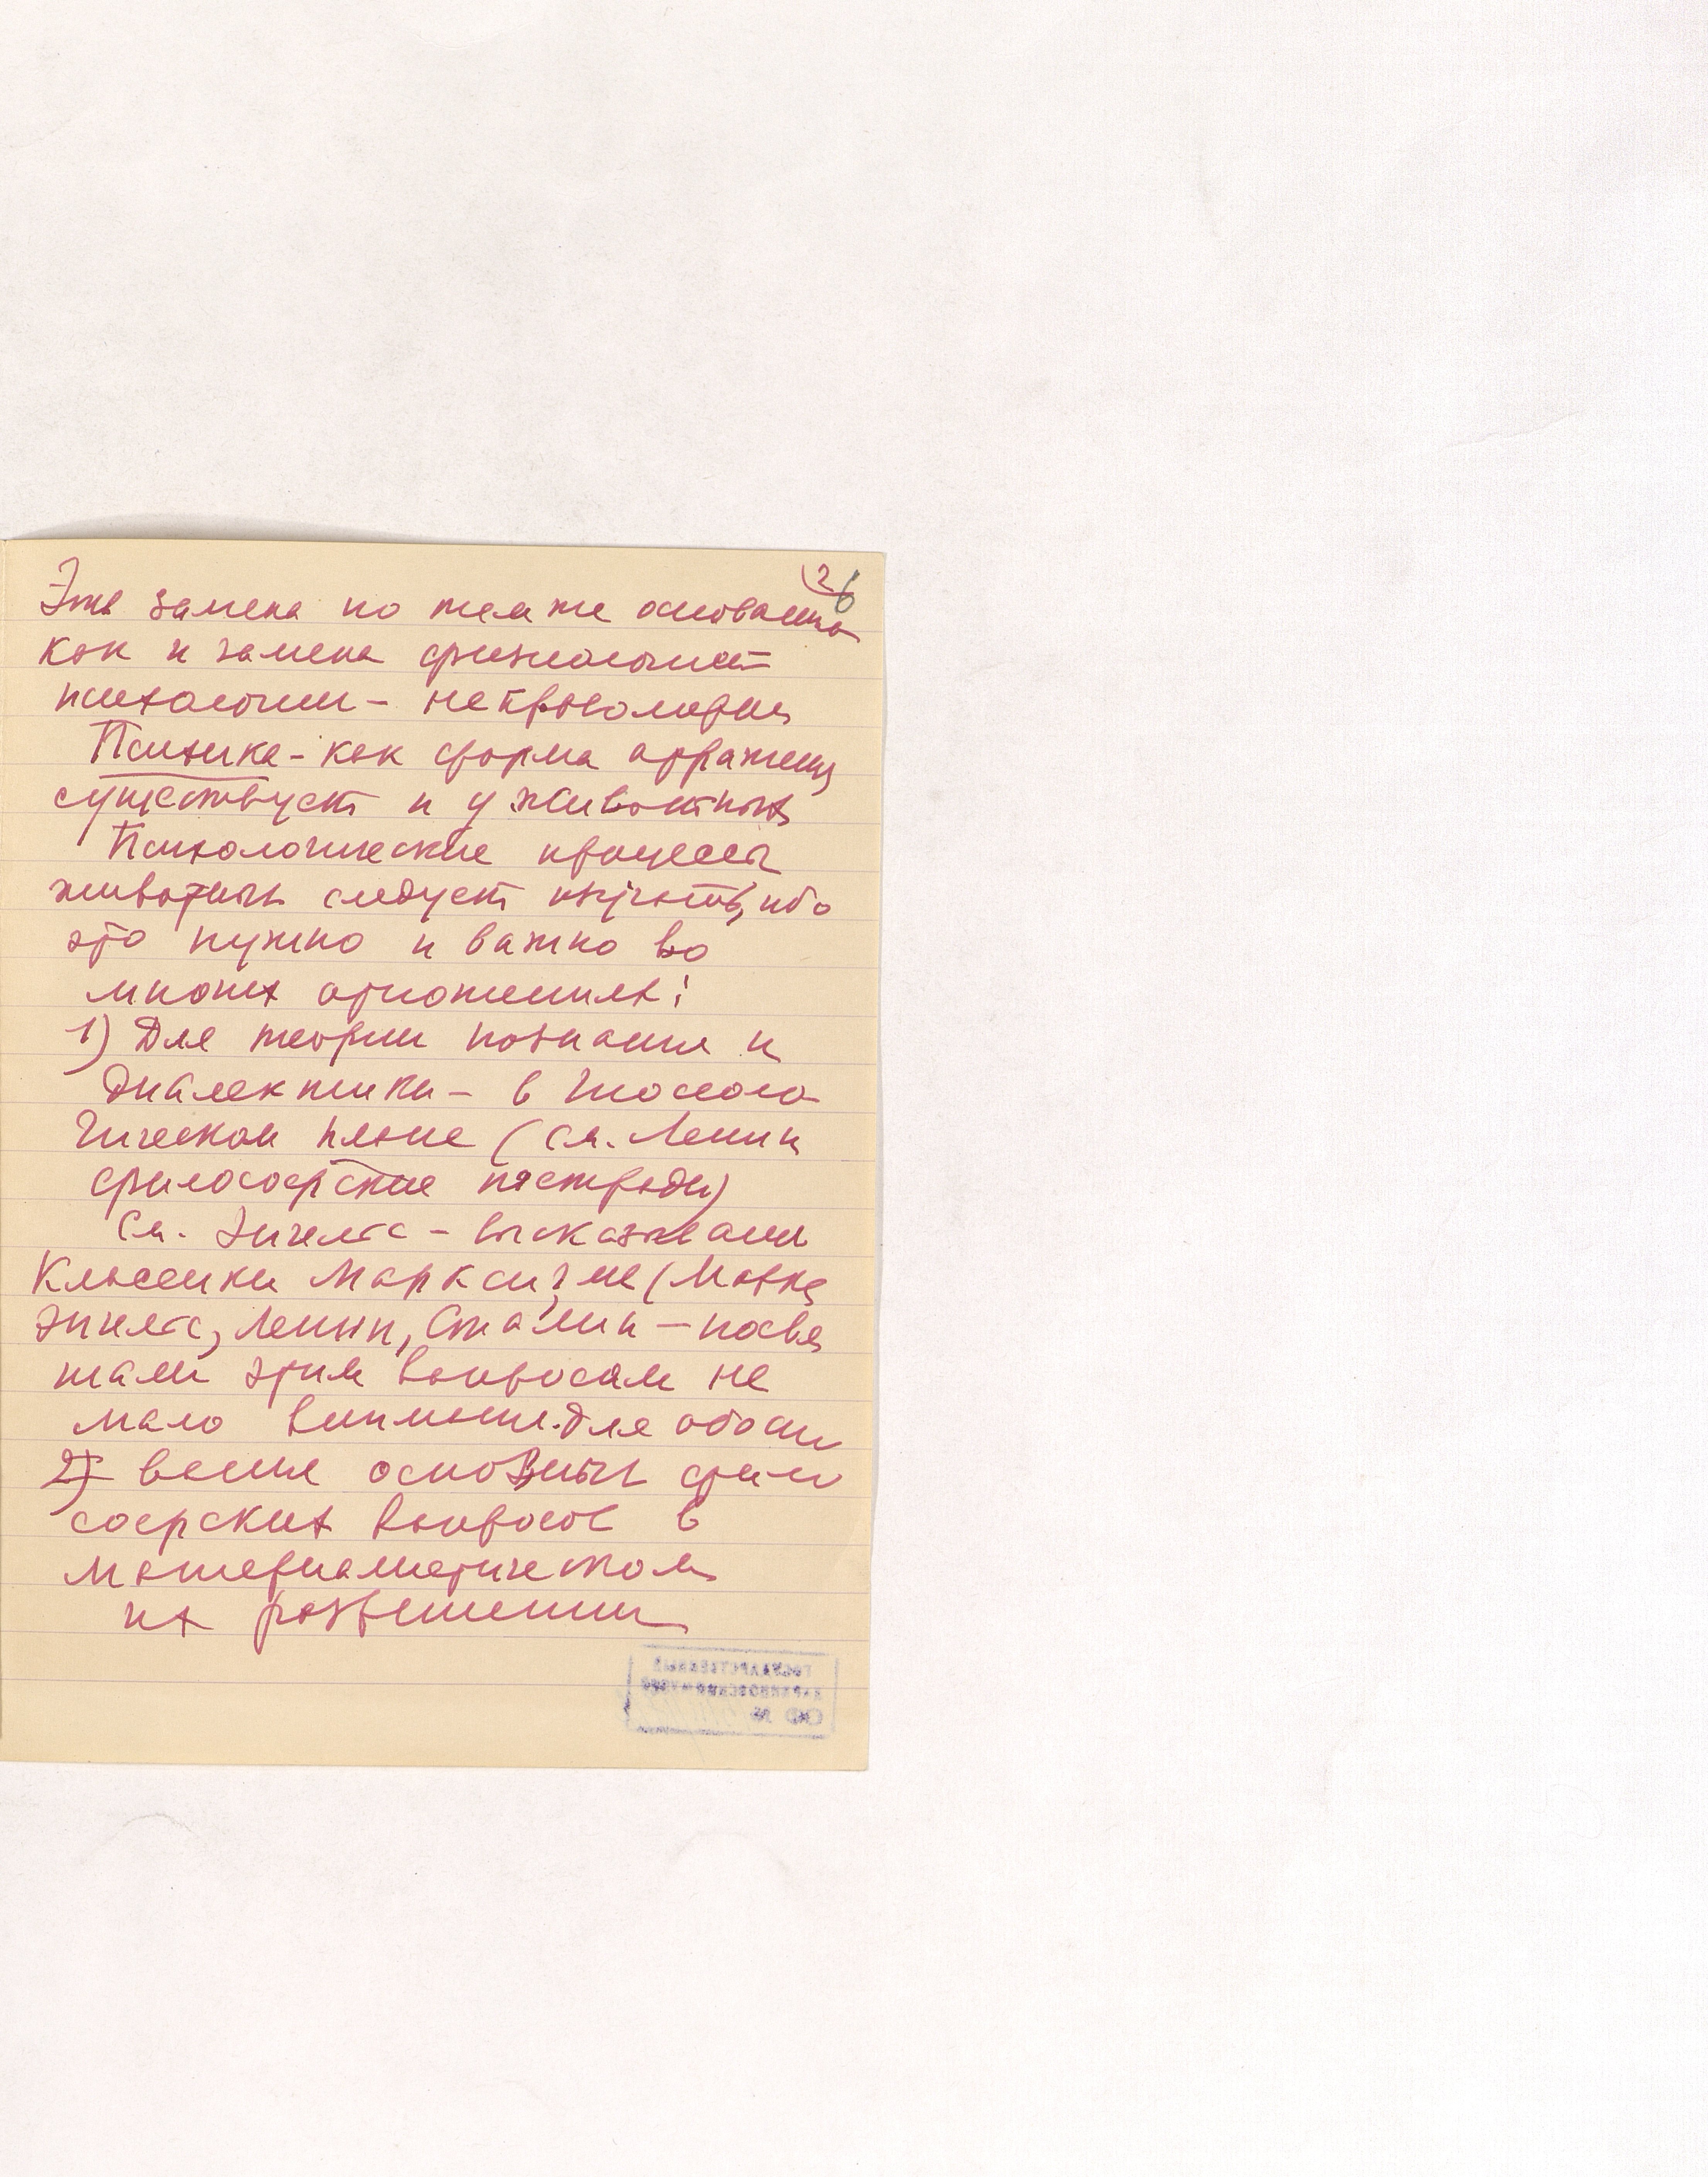 (2 6
Эта замена по тем же основаниям
как и замена физиологией
психологии – не правомерна
Психика – как форма отражения
существует и у животных
Психологические процессы
животных следует изучать, ибо
это нужно и важно во
многих отношениях:
1) Для теории познания и
диалектики – в гносеоло
гическом плане (см. Ленин
философские тетради)
См. Энгельс – высказывания
Классики Марксизма (Маркс
Энгельс, Ленин, Сталин – посвя
щали этим вопросам не
мало внимания. Для обосно
2) вания основных фило
софских вопросов в
материалистическом
их разрешении
ГОСУДАРСТВЕННЫЙ
ДАРВИНОВСКИЙ МУЗЕЙ